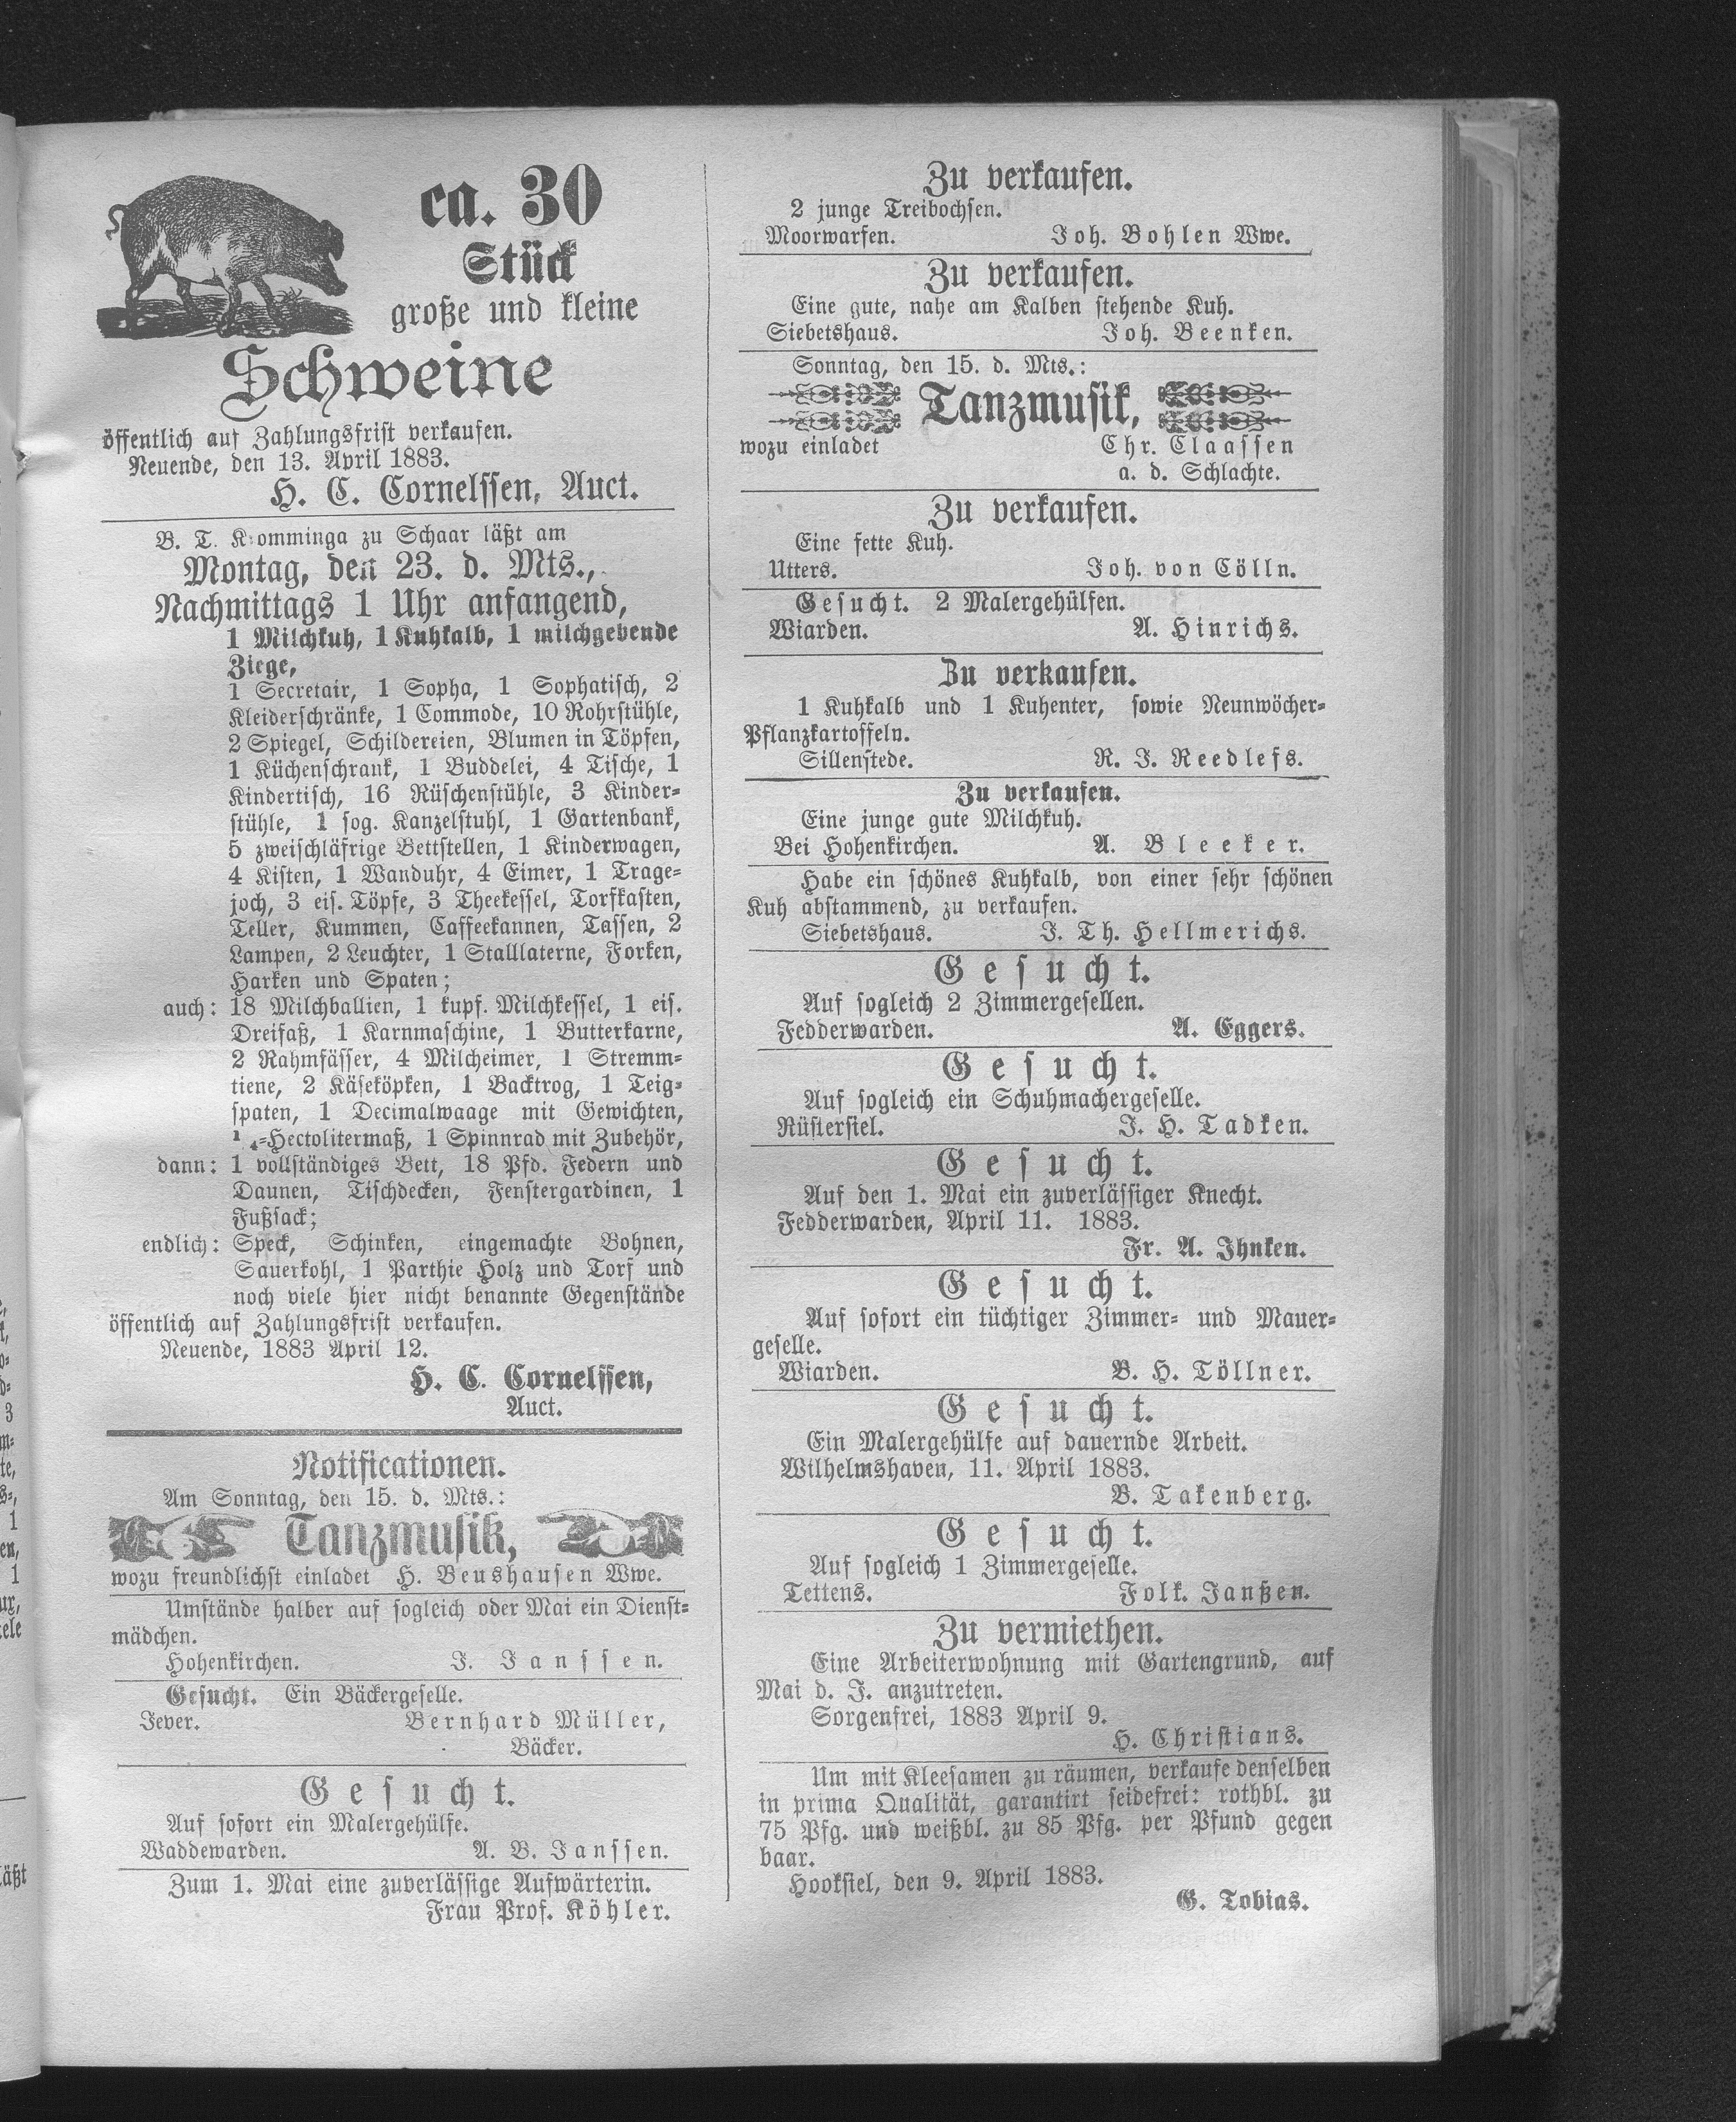 ca. 30
Stück
große und kleine
Schweine
öffentlich auf Zahlungsfrist verkaufen.
Neuende, den 13. April 1883.
H. C. Cornelssen, Auct.
B. T. Kromminga zu Schaar läßt am
Montag, den 23. d. Mts.,
Nachmittags 1 Uhr anfangend,
1 Milchkuh, 1 Kuhkalb, 1 milchgebende
Ziege,
1 Secretair, 1 Sopha, 1 Sophatisch, 2
Kleiderschränke, 1 Commode, 10 Rohrstühle,
2 Spiegel, Schildereien, Blumen in Töpfen,
1 Küchenschrank, 1 Buddelei, 4 Tische, 1
Kindertisch, 16 Rüschenstühle, 3 Kinder-
stühle, 1 sog. Kanzelstuhl, 1 Gartenbank,
5 zweischläfrige Bettstellen, 1 Kinderwagen,
4 Kisten, 1 Wanduhr, 4 Eimer, 1 Trage-
joch, 3 eis. Töpfe, 3 Theekessel, Torfkasten,
Teller, Kummen, Caffeekannen, Tassen, 2
Lampen, 2 Leuchter, 1 Stalllaterne, Forken,
Harken und Spaten;
auch: 18 Milchballien, 1 kupf. Milchkessel, 1 eis.
Dreifaß, 1 Karnmaschine, 1 Butterkarne,
2 Rahmfässer, 4 Milcheimer, 1 Stremm-
tiene, 2 Käseköpken, 1 Backtrog, 1 Teig-
spaten, 1 Decimalwaage mit Gewichten,
1/4-Hectolitermaß, 1 Spinnrad mit Zubehör,
dann: 1 vollständiges Bett, 18 Pfd. Federn und
Daunen, Tischdecken, Fenstergardinen, 1
Fußsack;
endlich: Speck, Schinken, eingemachte Bohnen,
Sauerkohl, 1 Parthie Holz und Torf und
noch viele hier nicht benannte Gegenstände
öffentlich auf Zahlungsfrist verkaufen.
Neuende, 1883 April 12.
H. C. Cornelssen,
Auct.
Notificationen.
Am Sonntag, den 15. d. Mts.:
Tanzmusik,
wozu freundlichst einladet H. Beushausen Wwe.
Umstände halber auf sogleich oder Mai ein Dienst-
mädchen.
Hohenkirchen. J. Janssen.
Gesucht. Ein Bäckergeselle.
Jever. Bernhard Müller,
Bäcker.
Gesucht.
Auf sofort ein Malergehülfe.
Waddewarden. A. B. Janssen.
Zum 1. Mai eine zuverlässige Aufwärterin.
Frau Prof. Köhler.
Zu verkaufen.
2 junge Treibochsen.
Moorwarfen. Joh. Bohlen Wwe.
Zu verkaufen.
Eine gute, nahe am Kalben stehende Kuh.
Siebetshaus. Joh. Beenken.
Sonntag, den 15. d. Mts.:
Tanzmusik,
wozu einladet Chr. Claassen
a. d. Schlachte.
Zu verkaufen.
Eine fette Kuh.
Utters. Joh. von Cölln.
Gesucht. 2 Malergehülfen.
Wiarden. A. Hinrichs.
Zu verkaufen.
1 Kuhkalb und 1 Kuhenter, sowie Neunwöcher-
Pflanzkartoffeln.
Sillenstede. R. J. Reedlefs.
Zu verkaufen.
Eine junge gute Milchkuh.
Bei Hohenkirchen. A. Bleeker.
Habe ein schönes Kuhkalb, von einer sehr schönen
Kuh abstammend, zu verkaufen.
Siebetshaus. J. Th. Hellmerichs.
Gesucht.
Auf sogleich 2 Zimmergesellen.
Fedderwarden. A. Eggers.
Gesucht.
Auf sogleich ein Schuhmachergeselle.
Rüstersiel. J. H. Tadken.
Gesucht.
Auf den 1. Mai ein zuverlässiger Knecht.
Fedderwarden, April 11. 1883.
Fr. A. Ihnken.
Gesucht.
Auf sofort ein tüchtiger Zimmer- und Mauer-
geselle.
Wiarden. B. H. Töllner.
Gesucht.
Ein Malergehülfe auf dauernde Arbeit.
Wilhelmshaven, 11. April 1883.
B. Takenberg.
Gesucht.
Auf sogleich 1 Zimmergeselle.
Tettens. Folk. Janßen.
Zu vermiethen.
Eine Arbeiterwohnung mit Gartengrund, auf
Mai d. J. anzutreten.
Sorgenfrei, 1883 April 9.
H. Christians.
Um mit Kleesamen zu räumen, verkaufe denselben
in prima Qualität, garantirt seidefrei: rothbl. zu
75 Pfg. und weißbl. zu 85 Pfg. per Pfund gegen
baar.
Hooksiel, den 9. April 1883.
G. Tobias.